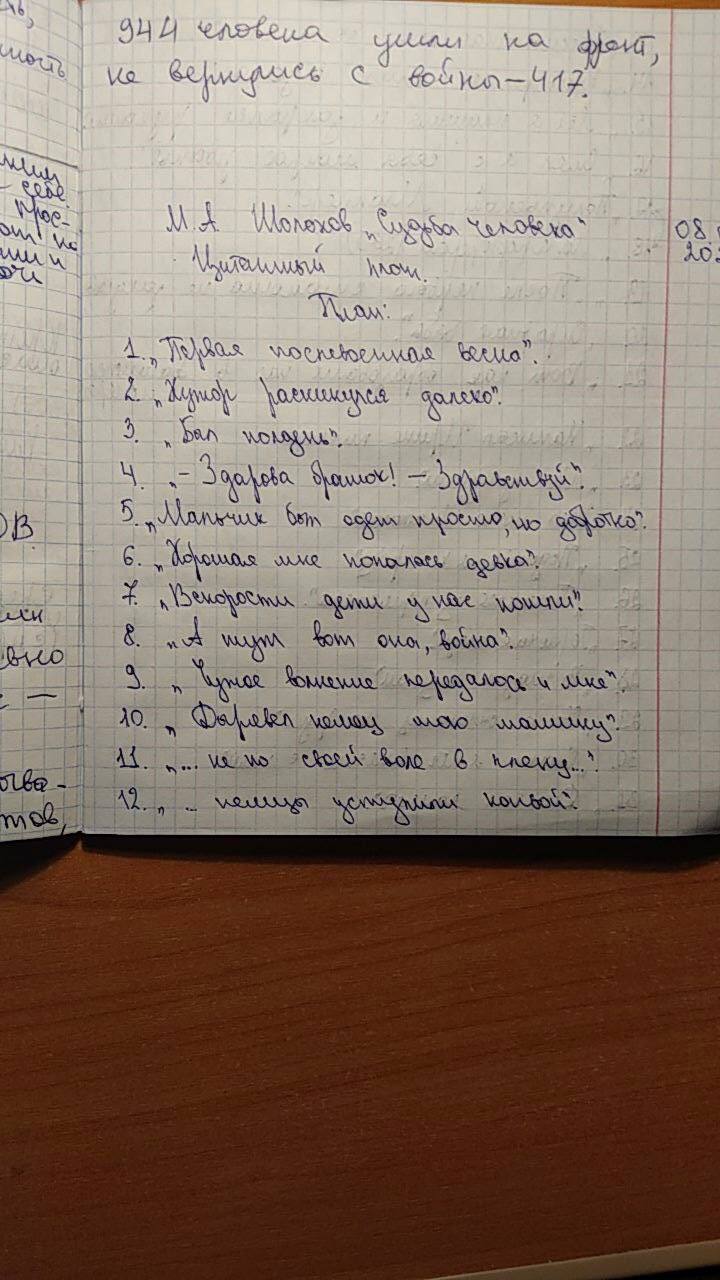 944 человека ушли на фронт,
не вернулись с войны-417.
М.А Шолохов „Судьба человека"
Цитатный план.
План:
1. „Первая послевоенная весна".
2. „Хутор раскинулся далеко".
3. „Был полдень".
4. „- Здарова браток! - Здравствуй".
5. „Мальчик был одет просто, но добротно".
6. „Хорошая мне попалась девка".
7. „Вскорости дети у нас пошли".
8. „А тут вот она, война".
9. „Чужое волнение передалось и мне".
10. „ немец мою машину".
11. „... не по своей воле в плену...".
12. „.. немцы уступили конвой".
ность
себе
Прос-
08
20
ОВ.
вно
ыва-
тов,